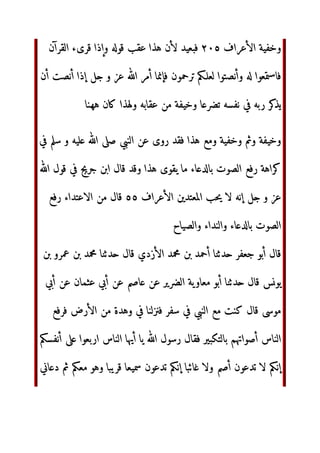 وخفية الأعراف ٢٠٥ فبعيد لأن هذا عقب قوله وإذا قرىء القرآن
فاستمعوا له وأنصتوا لعلكم ترحمون فإنما أمر الله عز و جل إذا أنصت أن
يذكر ربه في نفسه تضرعا وخيفة من عقابه ولهذا كان ههنا
وخيفة وثم وخفية ومع هذا فقد روى عن النبي صلى الله عليه و سلم في
كراهة رفع الصوت بالدعاء ما يقوى هذا وقد قال ابن جريج في قول الله
عز و جل إنه لا يحب المعتدين الأعراف ٥٥ قال من الاعتداء رفع
الصوت بالدعاء والنداء والصياح
قال أبو جعفر حدثنا أحمد بن محمد الأزدي قال حدثنا محمد بن عمرو بن
يونس قال حدثنا أبو معاوية الضرير عن عاصم عن أبي عثمان عن أبي
موسى قال كنت مع النبي في سفر فنزلنا في وهدة من الأرض فرفع
الناس أصواتهم بالتكبير فقال رسول الله يا أيها الناس اربعوا على أنفسكم
إنكم لا تدعون أصم ولا غائبا إنكم تدعون سميعا قريبا وهو معكم ثم دعاني